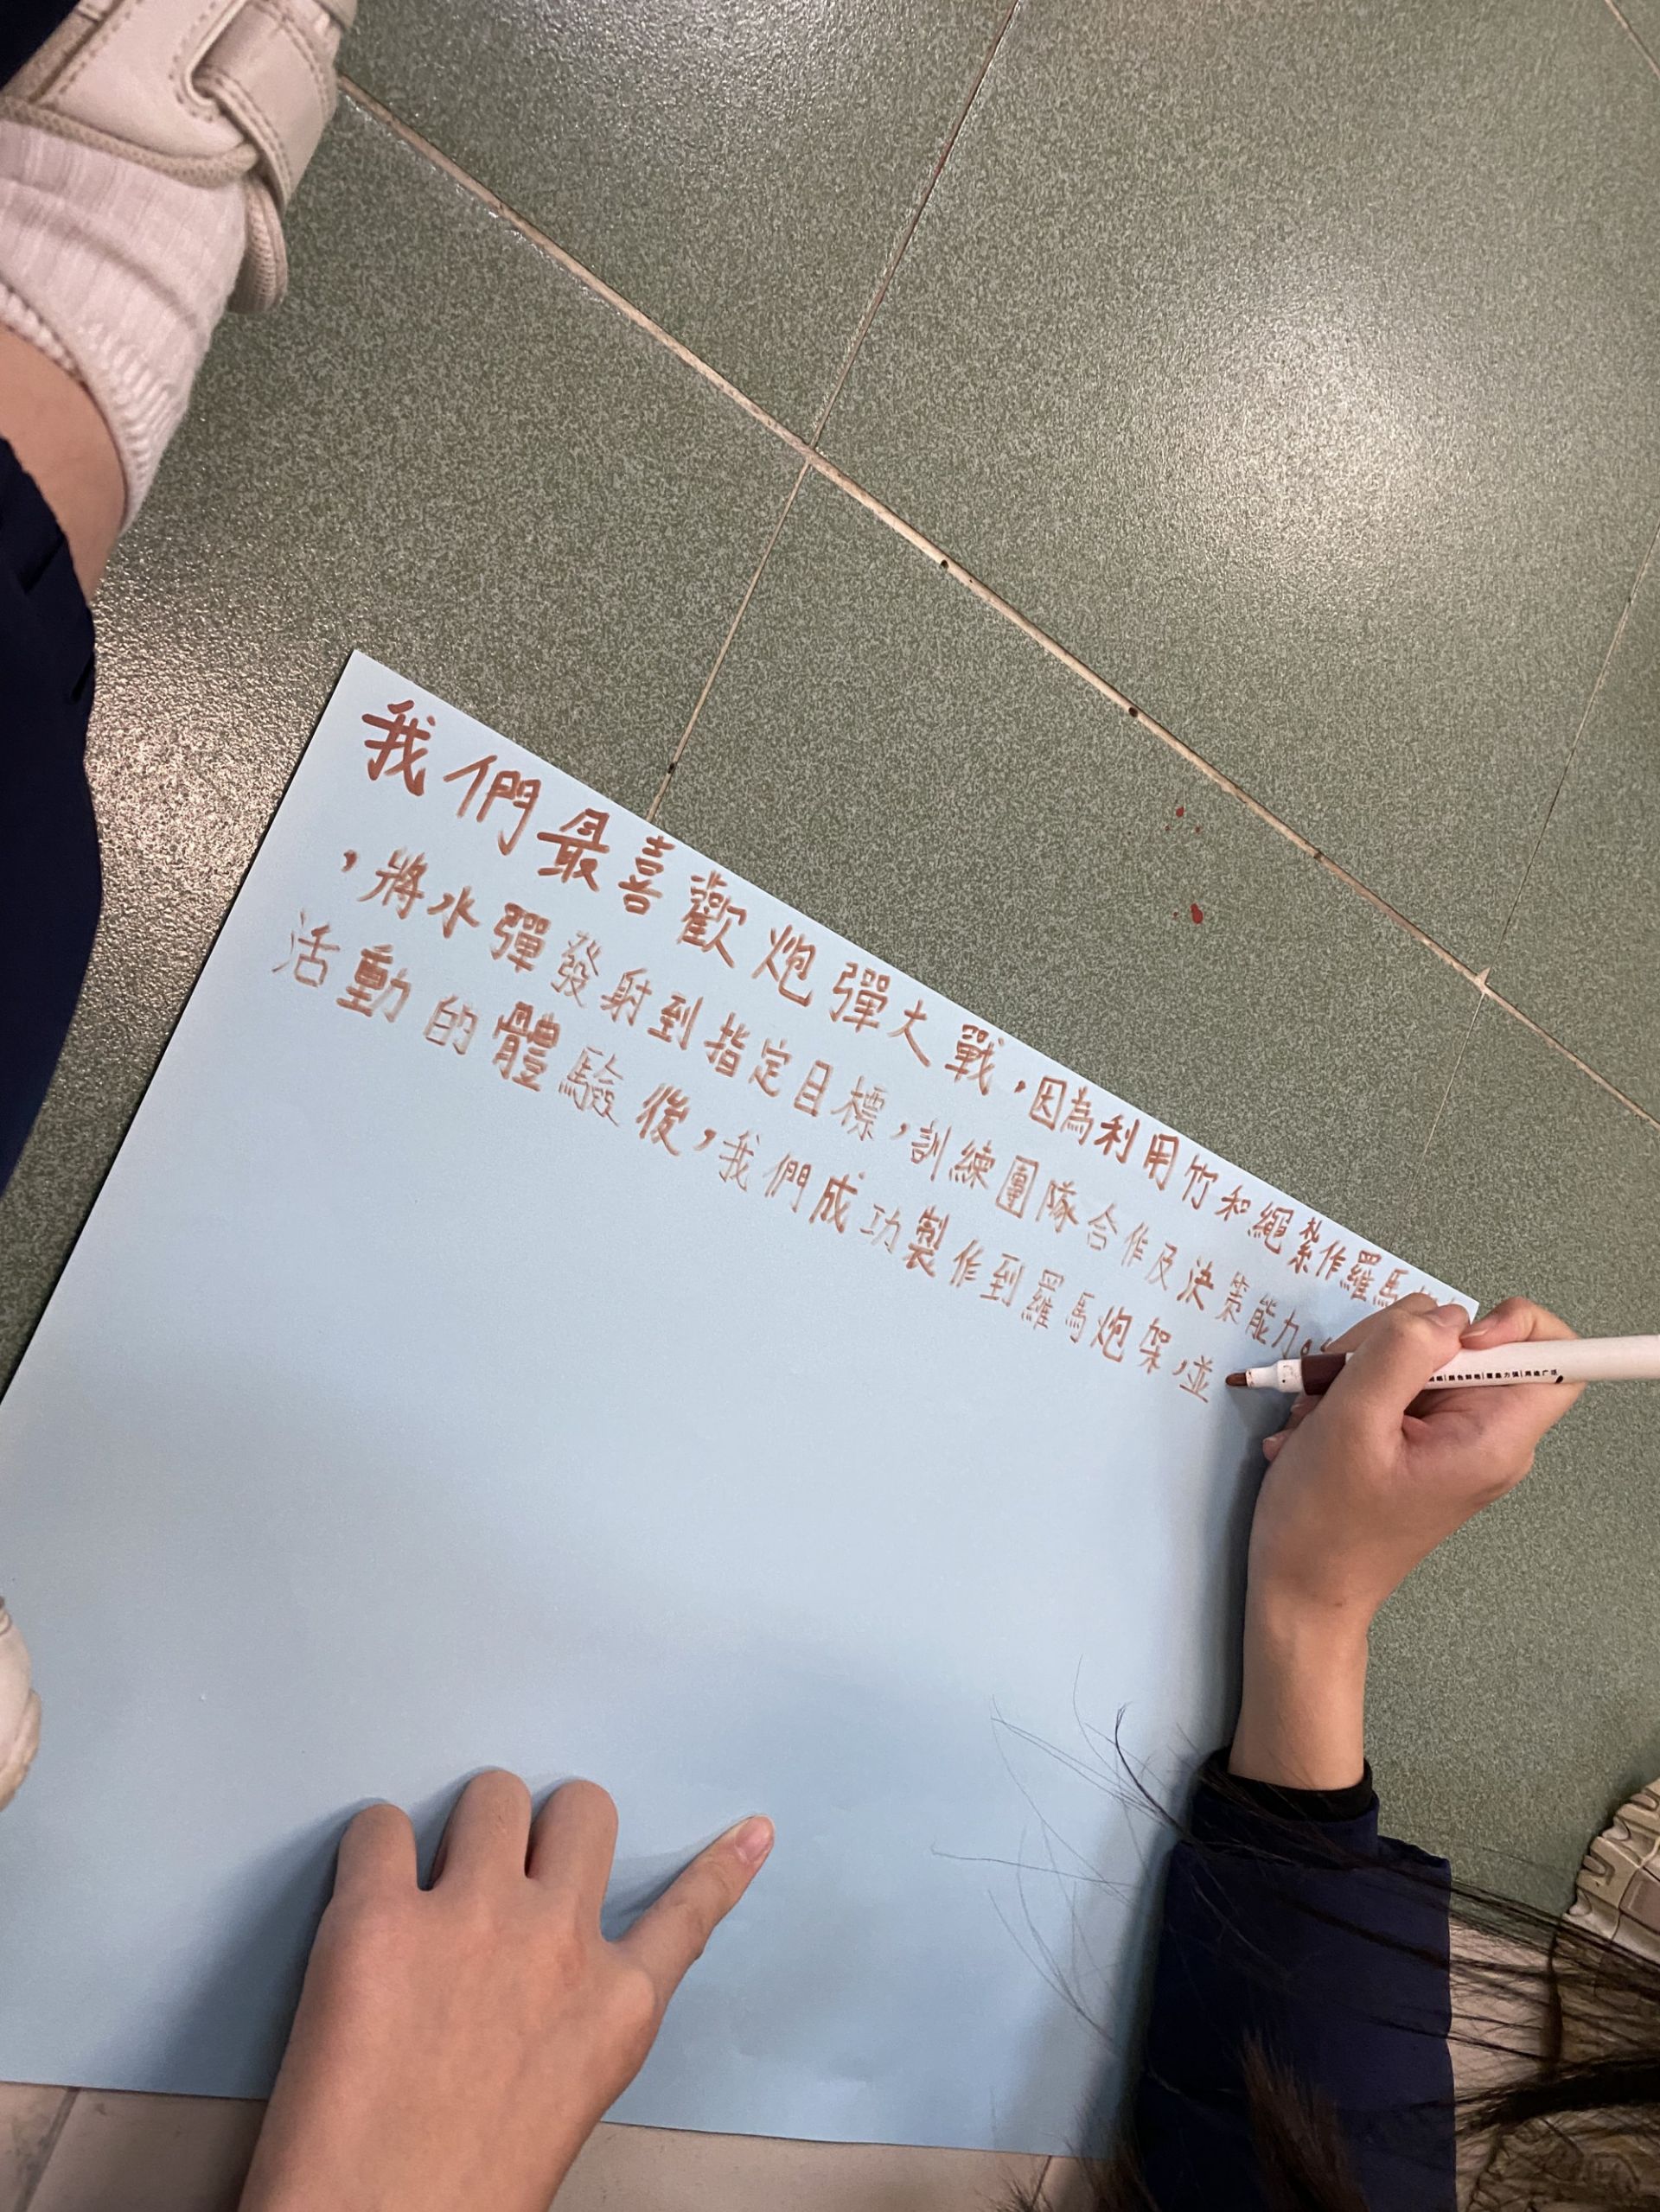 我們最喜歡炮彈大戰,因為利用竹和繩紮作羅馬
,將水彈發射到指定目標,訓練團隊合作及決策能力。
活動的體驗後,我們成功製作到羅馬炮架,並